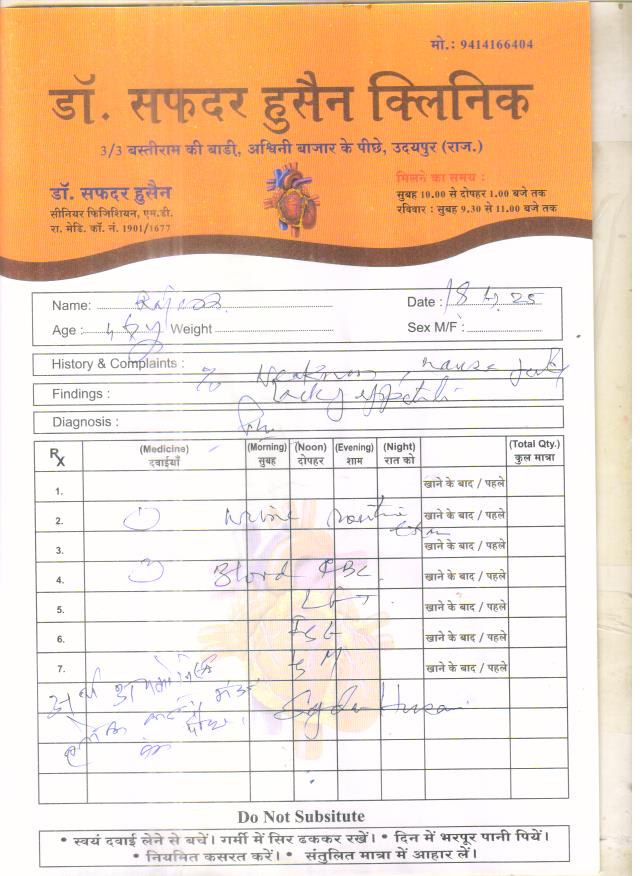 मो.: 9414166404
डॉ. सफदर हुसैन क्लिनिक
3/3 बस्तीराम की बाडी, अश्विनी बाजार के पीछे, उदयपुर (राज.)
डॉ. सफदर हुसैन
सीनियर फिजिशियन, एम.डी.
रा. मेडि. कॉ. नं. 1901/1677
मिलने का समय :
सुबह 10.00 से दोपहर 1.00 बजे तक
रविवार : सुबह 9.30 से 11.00 बजे तक
Name: Date : 18 25
Age : Weight Sex M/F :
History & Complaints : Weakness,
Findings : Lack
Diagnosis :
Rx (Medicine) (Morning) (Noon) (Evening) (Night) (Total Qty.)
दवाईयाँ सुबह दोपहर शाम रात को कुल मात्रा
1. खाने के बाद / पहले
2. Urine routine खाने के बाद / पहले
3. खाने के बाद / पहले
4. Blood CBC खाने के बाद / पहले
5. LFT खाने के बाद / पहले
6. खाने के बाद / पहले
7. खाने के बाद / पहले
Do Not Subsitute
• स्वयं दवाई लेने से बचें। गर्मी में सिर ढककर रखें। • दिन में भरपूर पानी पियें।
• नियमित कसरत करें। • संतुलित मात्रा में आहार लें।